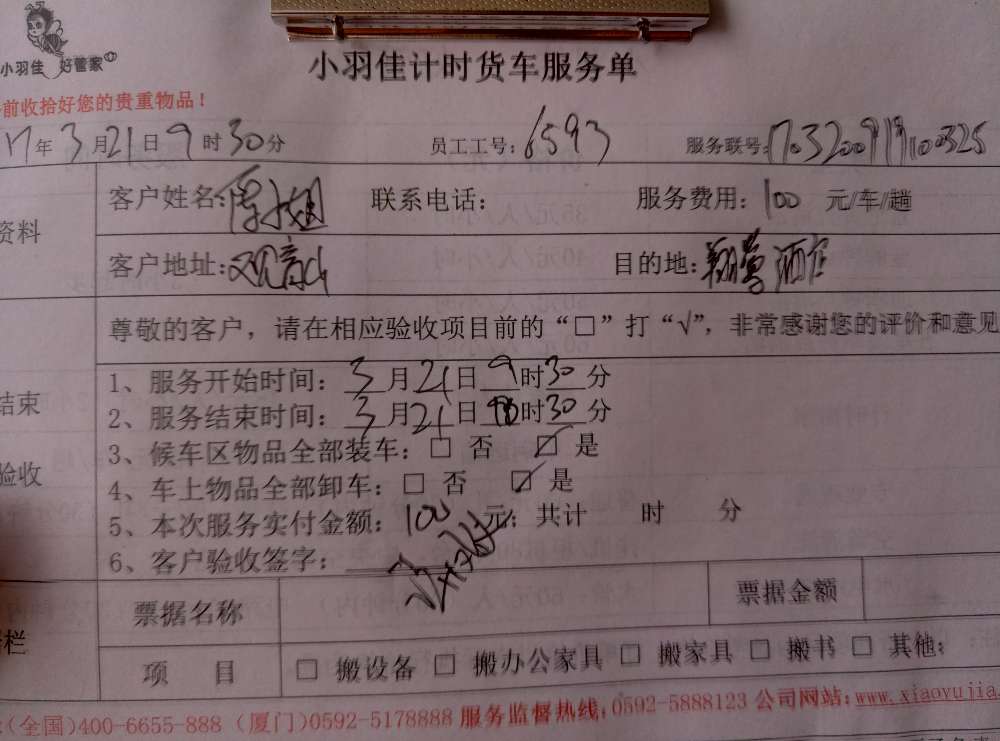 小羽佳 好管家
小羽佳计时货车服务单
前收拾好您的贵重物品！
17年3月21日9时30分 员工工号：6593 服务联号：
资料
客户姓名： 联系电话： 服务费用：100 元/车/趟
客户地址：观音山 目的地： 酒店
尊敬的客户，请在相应验收项目前的“□”打“√”，非常感谢您的评价和意见
结束
验收
1、服务开始时间：3月21日9时30分
2、服务结束时间：3月21日 时30分
3、候车区物品全部装车：□ 否 ☑ 是
4、车上物品全部卸车：□ 否 ☑ 是
5、本次服务实付金额：100 元；共计 时 分
6、客户验收签字：
栏
票据名称 票据金额
项 目 □ 搬设备 □ 搬办公家具 □ 搬家具 □ 搬书 □ 其他：
(全国)400-6655-888 (厦门)0592-5178888 服务监督热线：0592-5888123 公司网站：www.xiaoyujia